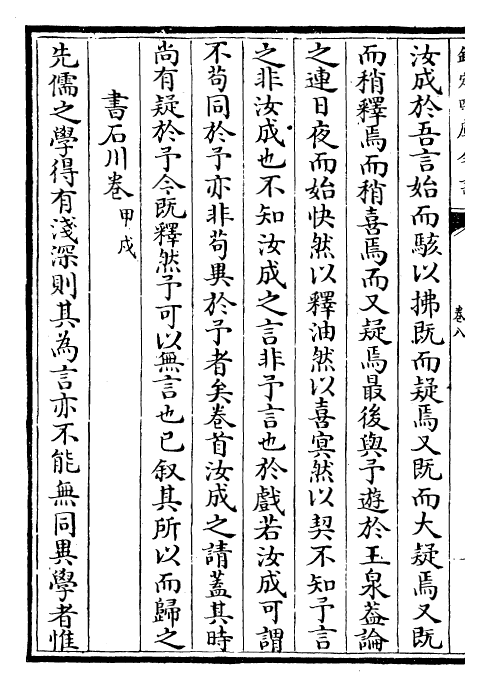 欽定四庫全書
卷八
汝成於吾言始而駭以拂既而疑焉又既而大疑焉又既
而稍釋焉而稍喜焉而又疑焉最後與予遊於玉泉葢論
之連日夜而始快然以釋油然以喜㝠然以契不知予言
之非汝成也不知汝成之言非予言也於戲若汝成可謂
不苟同於予亦非苟異於予者矣卷首汝成之請蓋其時
尚有疑於予今既釋然予可以無言也已叙其所以而歸之
書石川卷 甲戌
先儒之學得有淺深則其為言亦不能無同異學者惟